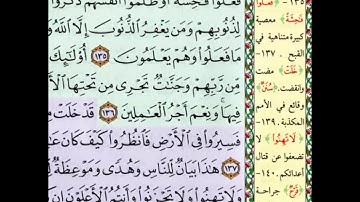 فَعَلُوا۟ فَٰحِشَةً أَوْ ظَلَمُوٓا۟ أَنفُسَهُمْ ذَكَرُوا۟
لِذُنُوبِهِمْ وَمَن يَغْفِرُ ٱلذُّنُوبَ إِلَّا ٱللَّهُ و
مَا فَعَلُوا۟ وَهُمْ يَعْلَمُونَ ١٣٥ أُو۟لَٰٓئِكَ
مِّن رَّبِّهِمْ وَجَنَّٰتٌ تَجْرِى مِن تَحْتِهَا ٱلْأَ
فِيهَا وَنِعْمَ أَجْرُ ٱلْعَٰمِلِينَ ١٣٦ قَدْ خَلَتْ مِ
فَسِيرُوا۟ فِى ٱلْأَرْضِ فَٱنظُرُوا۟ كَيْفَ كَانَ عَٰ
١٣٧ هَٰذَا بَيَانٌ لِّلنَّاسِ وَهُدًى وَمَوْعِظَةٌ لِّ
وَلَا تَهِنُوا۟ وَلَا تَحْزَنُوا۟ وَأَنتُمُ ٱلْأَعْلَوْنَ إِن
١٣٥- فعلوا
فَاحِشَةً معصية
كبيرة متناهية في
القبح - ١٣٧-
خَلَتْ مضت
وانقضت. سُنَنٌ
وقائع في الأمم
المكذبة. ١٣٩-
لَا تَهِنُوا لا
تضعفوا عن قتال
أعدائكم. ١٤٠-
قَرْحٌ جراحة